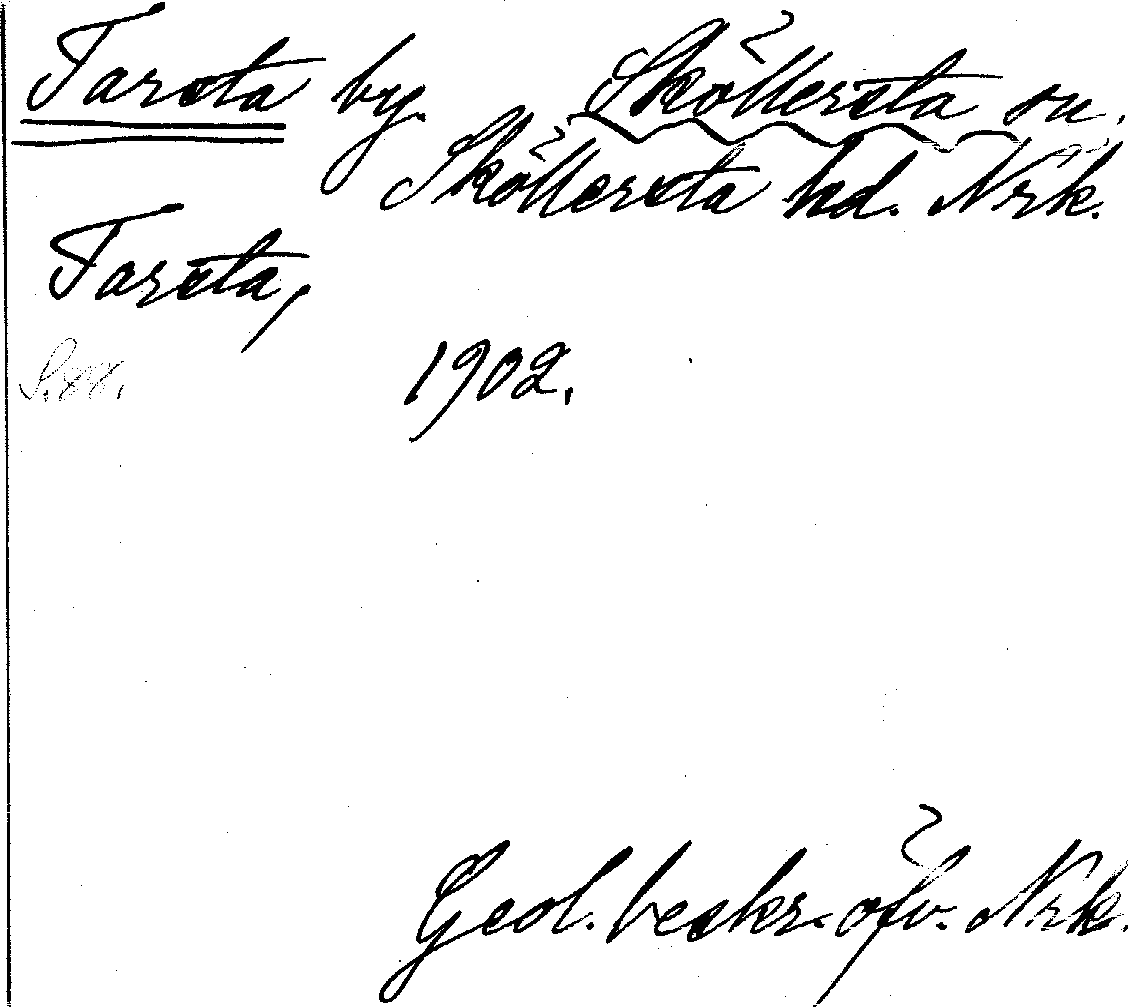 Tarsta by. Sköllersta sn.
Sköllersta hd. Nrk.
Tarsta,
S. 88.
1902.
Geol. beskr. öfv. Nrk.